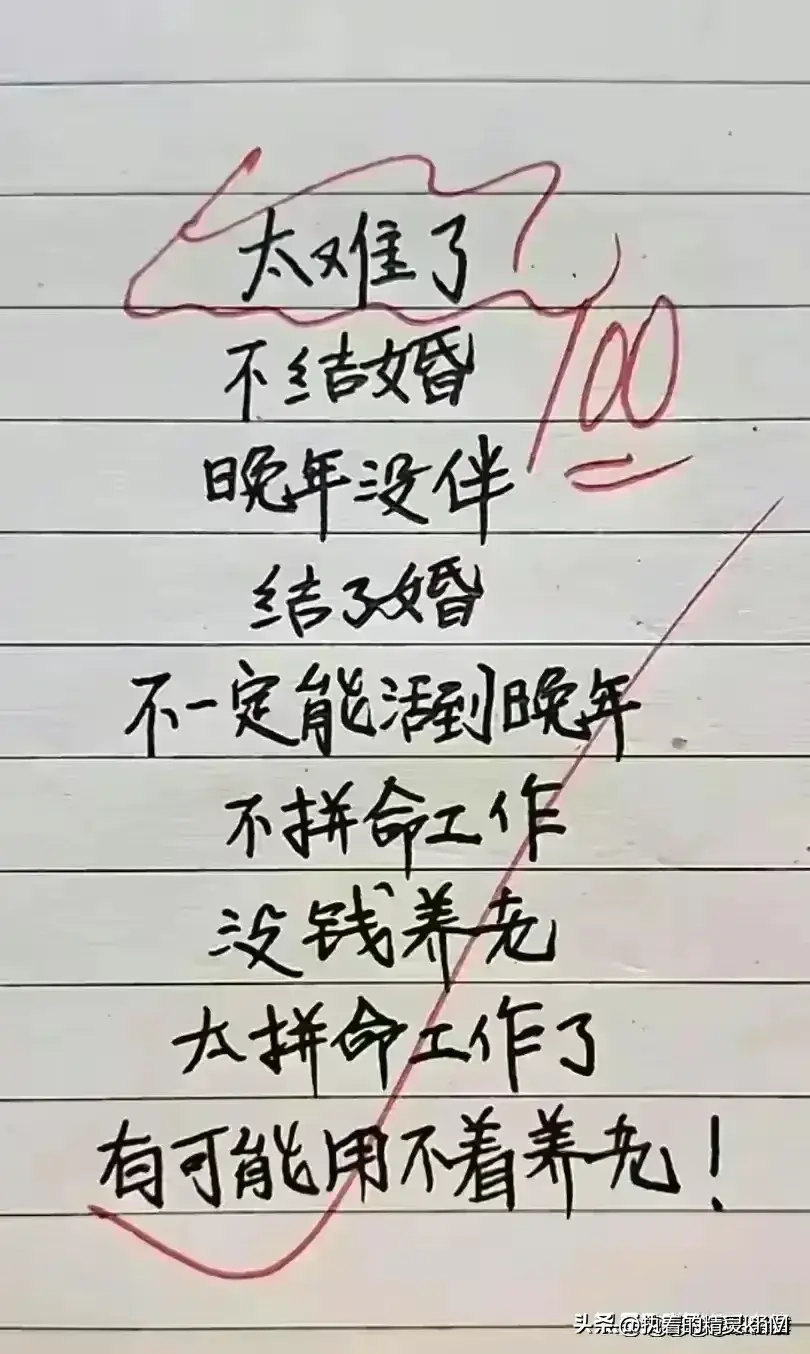 太难了
100
不结婚
晚年没伴
结了婚
不一定能活到晚年
不拼命工作
没钱养老
太拼命工作了
有可能用不着养老！
头条@执着的精灵